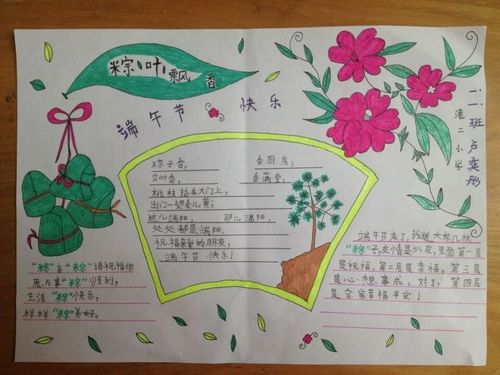 粽叶飘香
端午节 快乐
二、一班 卢奕彤
港二小学
粽子香, 香厨房,
艾叶香, 香满堂,
桃枝插在大门上,
出门一望麦儿黄;
这儿端阳, 那儿端阳,
处处都是端阳.
祝福亲爱的朋友,
端午节快乐!
“粽”言“粽”语祝福你
万事“粽”顺利,
生活“粽”快乐,
样样“粽”美好.
端午节来了,我送大家几棕
“粽”子,友情是外皮,里面第一层
是祝福,第二层是幸福,第三层
是心想事成,对了,第四层
是合家幸福平安!